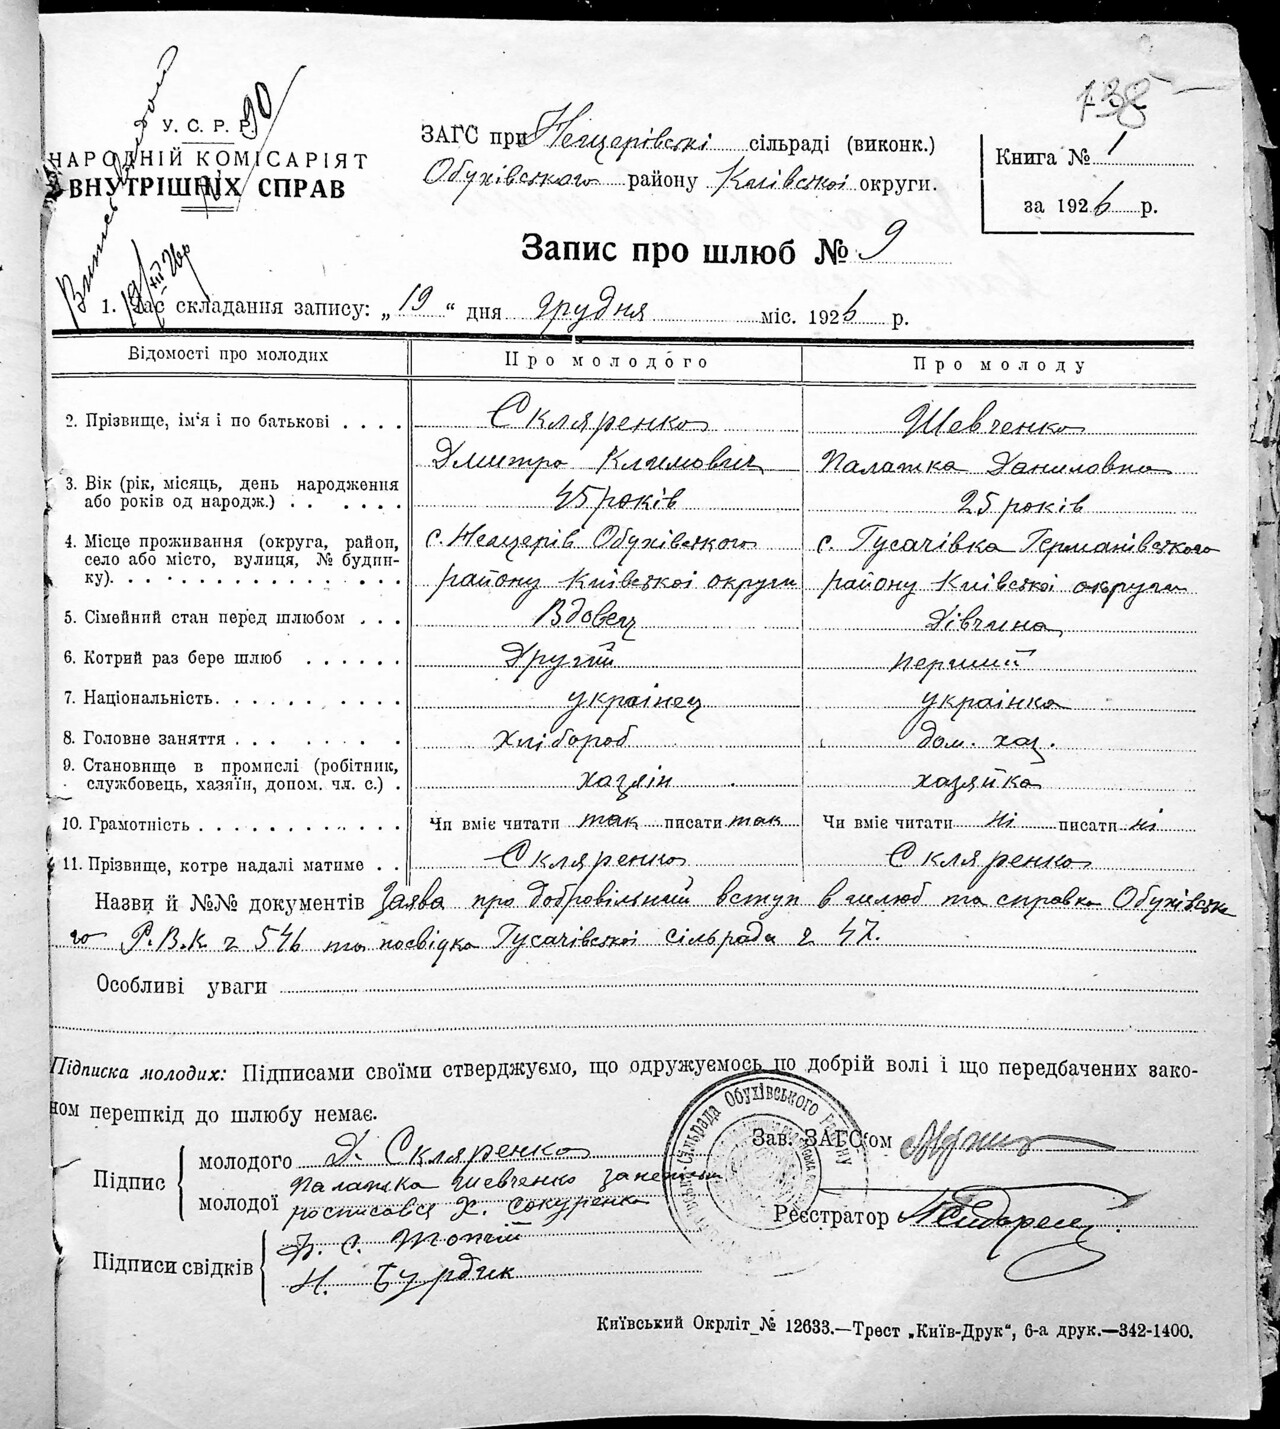 138
У. С. Р. Р.
НАРОДНІЙ КОМІСАРІЯТ
ВНУТРІШНІХ СПРАВ
ЗАГС при Нещерівські сільраді (виконк.)
Обухівського району Київської округи.
Книга № 1
за 1926 р.
Запис про шлюб № 9
1. Час складання запису: „19“ дня грудня міс. 1926 р.
Відомості про молодих Про молодого Про молоду
2. Прізвище, ім'я і по батькові Скляренко Шевченко
Дмитро Климович Палажка Даниловна
3. Вік (рік, місяць, день народження
або років од народж.) 45 років 25 років
4. Місце проживання (округа, район, с. Нещерів Обухівського с. Гусачівка Германівського
село або місто, вулиця, № будин-
ку) району Київської округи району Київської округи
5. Сімейний стан перед шлюбом Вдовец Дівчина
6. Котрий раз бере шлюб Другий перший
7. Національність українец українка
8. Головне заняття хлібороб дом. хаз.
9. Становище в промислі (робітник,
службовець, хазяїн, допом. чл. с.) хазяін хазяйка
10. Грамотність Чи вміє читати так писати так Чи вміє читати ні писати ні
11. Прізвище, котре надалі матиме Скляренко Скляренко
Назви й №№ документів Заява про добровільний вступ в шлюб та справка Обухівсько
го Р.В.К. ч 546 та посвідка Гусачівської сільради ч 47.
Особливі уваги
Підписка молодих: Підписами своїми стверджуємо, що одружуємось по добрій волі і що передбачених зако-
ном перешкід до шлюбу немає.
Підпис молодого Д. Скляренко
молодої Палажка Шевченко
росписався Х. Сокуренко
Зав. ЗАГС'ом
Реєстратор
Підписи свідків
Н. Бурдик
Сільрада Обухівського Району
Київський Окрліт № 12633.—Трест „Київ-Друк“, 6-а друк.—342-1400.